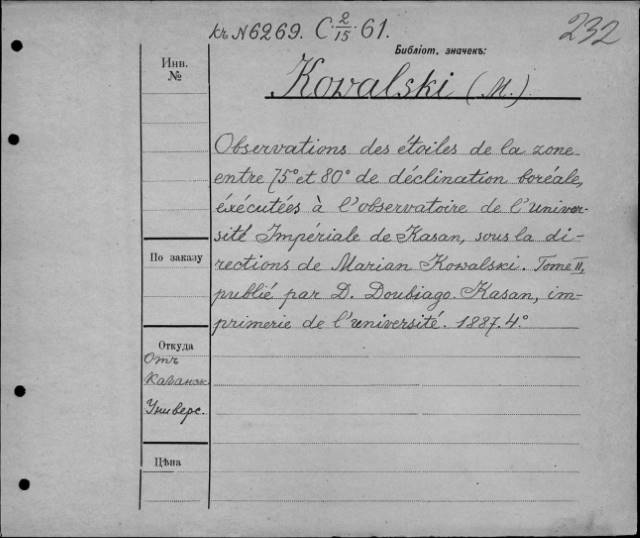 kr N 6269. C 2/15 61.
232
Библіот. значекъ:
Инв. №
Kowalski (M.)
Observations des étoiles de la zone
entre 75° et 80° de déclination boréale,
éxécutées à l'observatoire de l'Univer-
sité Impériale de Kasan, sous la di-
rections de Marian Kowalski. Tome II,
publié par D. Doubiago. Kasan, im-
primerie de l'université. 1887. 4°
По заказу
Откуда
Отъ
Казанск
Универс.
Цѣна